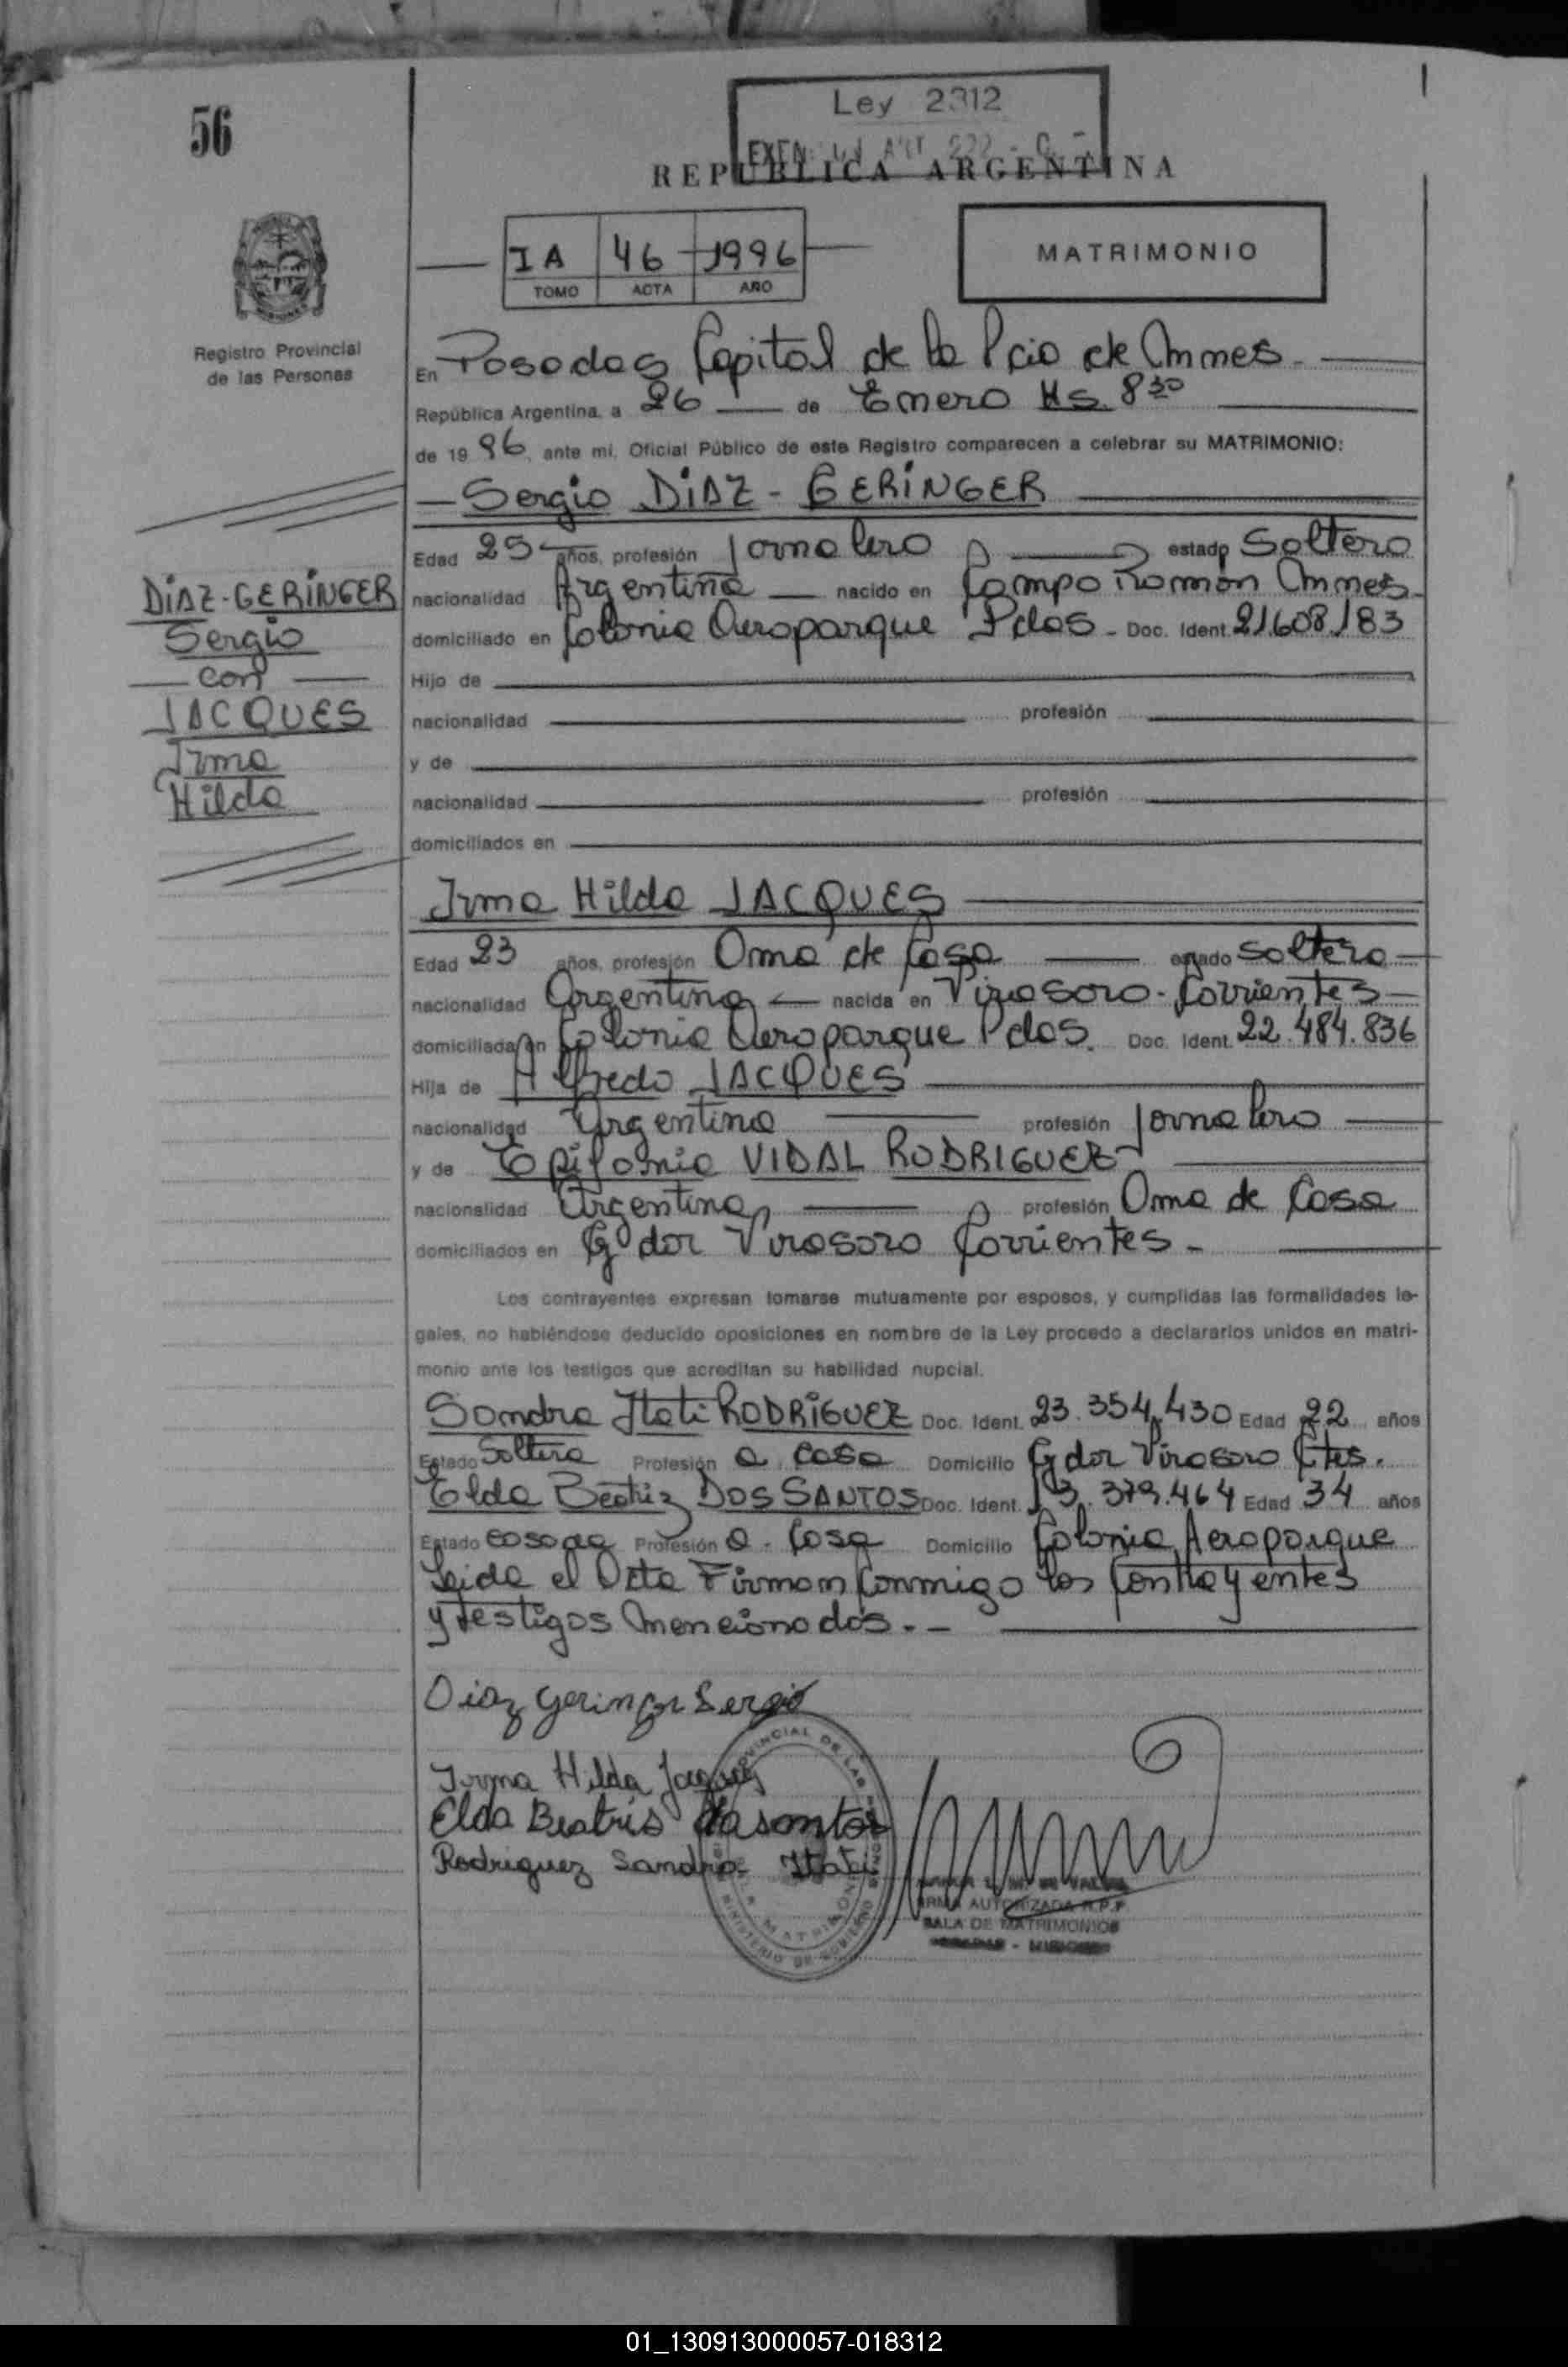 56
Ley 2312
REPUBLICA ARGENTINA
IA 46 1996
TOMO ACTA AÑO
MATRIMONIO
Registro Provincial
de las Personas
En Posadas Capital de la Pcia de Mnes.
República Argentina, a 26 de Enero Hs. 8 30
de 19 96, ante mi, Oficial Público de este Registro comparecen a celebrar su MATRIMONIO:
Sergio DIAZ - GERINGER
Edad 25 años, profesión Jornalero estado Soltero
nacionalidad Argentina nacido en Campo Ramón Mnes.
domiciliado en Colonia Aeroparque Pdas. Doc. Ident. 21.608.183
Hijo de
nacionalidad profesión
y de
nacionalidad profesión
domiciliados en
DIAZ-GERINGER
Sergio
con
JACQUES
Irma
Hilda
Irma Hilda JACQUES
Edad 23 años, profesión Ama de Casa estado soltera
nacionalidad Argentina nacida en Virasoro - Corrientes
domiciliada en Colonia Aeroparque Pdas. Doc. Ident. 22.484.836
Hija de Alfredo JACQUES
nacionalidad Argentina profesión Jornalero
y de Epifania VIDAL RODRIGUEZ
nacionalidad Argentina profesión Ama de Casa
domiciliados en Gdor Virasoro Corrientes.
Los contrayentes expresan tomarse mutuamente por esposos, y cumplidas las formalidades le-
gales, no habiéndose deducido oposiciones en nombre de la Ley procedo a declararlos unidos en matri-
monio ante los testigos que acreditan su habilidad nupcial.
Sandra Itati RODRIGUEZ Doc. Ident. 23.354.430 Edad 22 años
Estado Soltera Profesión a. casa Domicilio Gdor Virasoro Ctes.
Elda Beatriz DOS SANTOS Doc. Ident. 13.379.464 Edad 34 años
Estado casada Profesión a. Casa Domicilio Colonia Aeroparque
Leida el Acta Firman Conmigo los Contrayentes
y testigos Mencionados. -
Diaz Geringer Sergio
Irma Hilda Jacques
Elda Beatris dasantos
Rodriguez Sandra Itati
AUTORIZADA R.P.P.
SALA DE MATRIMONIOS
01_130913000057-018312